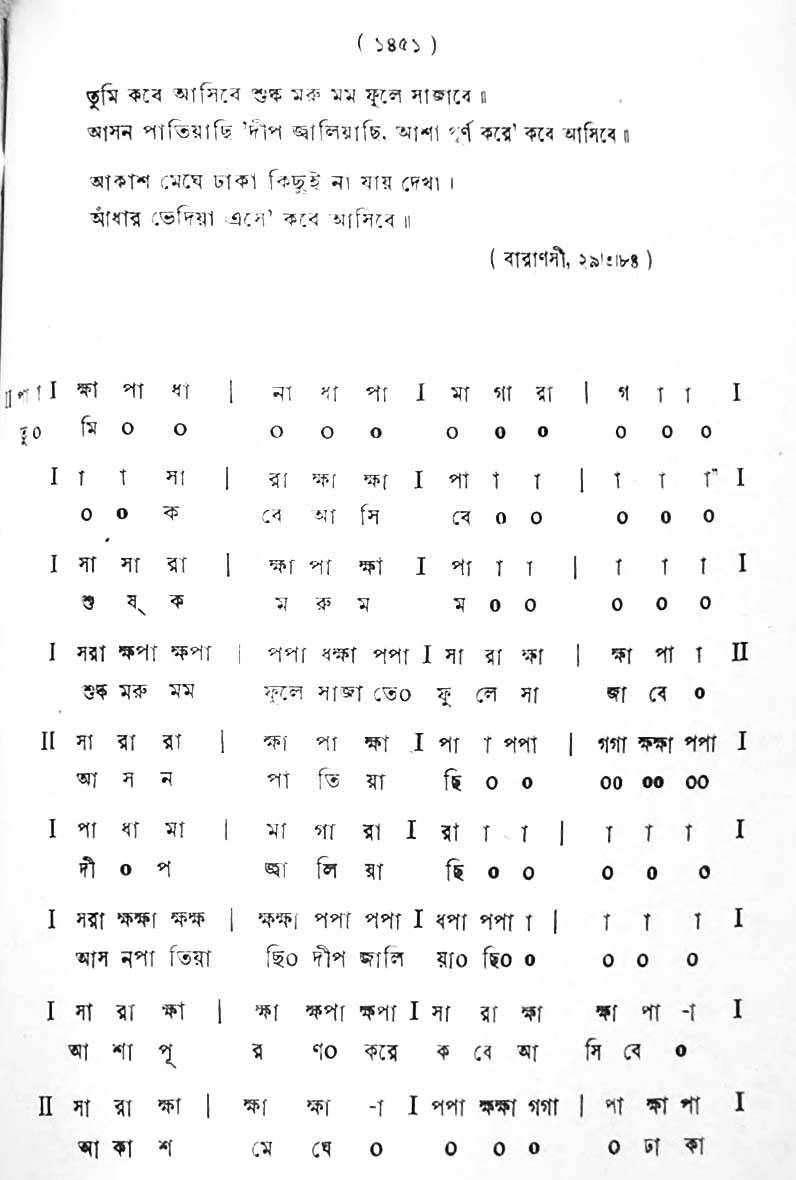 ( ১৪৫১ )
তুমি কবে আসিবে শুষ্ক মরু মম ফুলে সাজাবে॥
আসন পাতিয়াছি 'দীপ জ্বালিয়াছি, আশা পূর্ণ করে' কবে আসিবে॥
আকাশ মেঘে ঢাকা কিছুই না যায় দেখা।
আঁধার ভেদিয়া এসে' কবে আসিবে॥
( বারাণসী, )
II পা া I ক্ষা পা ধা | না ধা পা I মা গা রা | গ া া I
তু০ মি ০ ০ ০ ০ ০ ০ ০ ০ ০ ০ ০
I া া সা | রা ক্ষা ক্ষা I পা া া | া া া I
০ ০ ক বে আ সি বে ০ ০ ০ ০ ০
I সা সা রা | ক্ষা পা ক্ষা I পা া া | া া া I
শু ষ্ ক ম রু ম ম ০ ০ ০ ০ ০
I সরা ক্ষপা ক্ষপা | পপা ধক্ষা পপা I সা রা ক্ষা | ক্ষা পা া II
শুষ্ক মরু মম ফুলে সাজা তে০ ফু লে সা জা বে ০
II সা রা রা | ক্ষা পা ক্ষা I পা া পপা | গগা ক্ষক্ষা পপা I
আ স ন পা তি য়া ছি ০ ০ ০০ ০০ ০০
I পা ধা মা | মা গা রা I রা া া | া া া I
দী ০ প জ্বা লি য়া ছি ০ ০ ০ ০ ০
I সরা ক্ষক্ষা ক্ষক্ষ | ক্ষক্ষা পপা পপা I ধপা পপা া | া া া I
আস নপা তিয়া ছি০ দীপ জালি য়া০ ছি০ ০ ০ ০ ০
I সা রা ক্ষা | ক্ষা ক্ষপা ক্ষপা I সা রা ক্ষা ক্ষা পা -া I
আ শা পূ র ণ০ করে ক বে আ সি বে ০
II সা রা ক্ষা | ক্ষা ক্ষা -া I পপা ক্ষক্ষা গগা | পা ক্ষা পা I
আ কা শ মে ঘে ০ ০ ০ ০ ০ ঢা কা